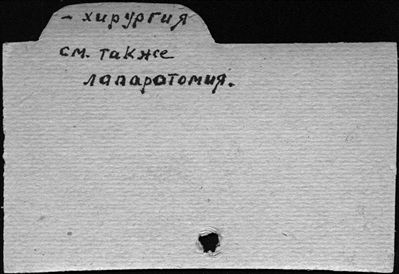 - хирургия
см. также
лапаратомия.